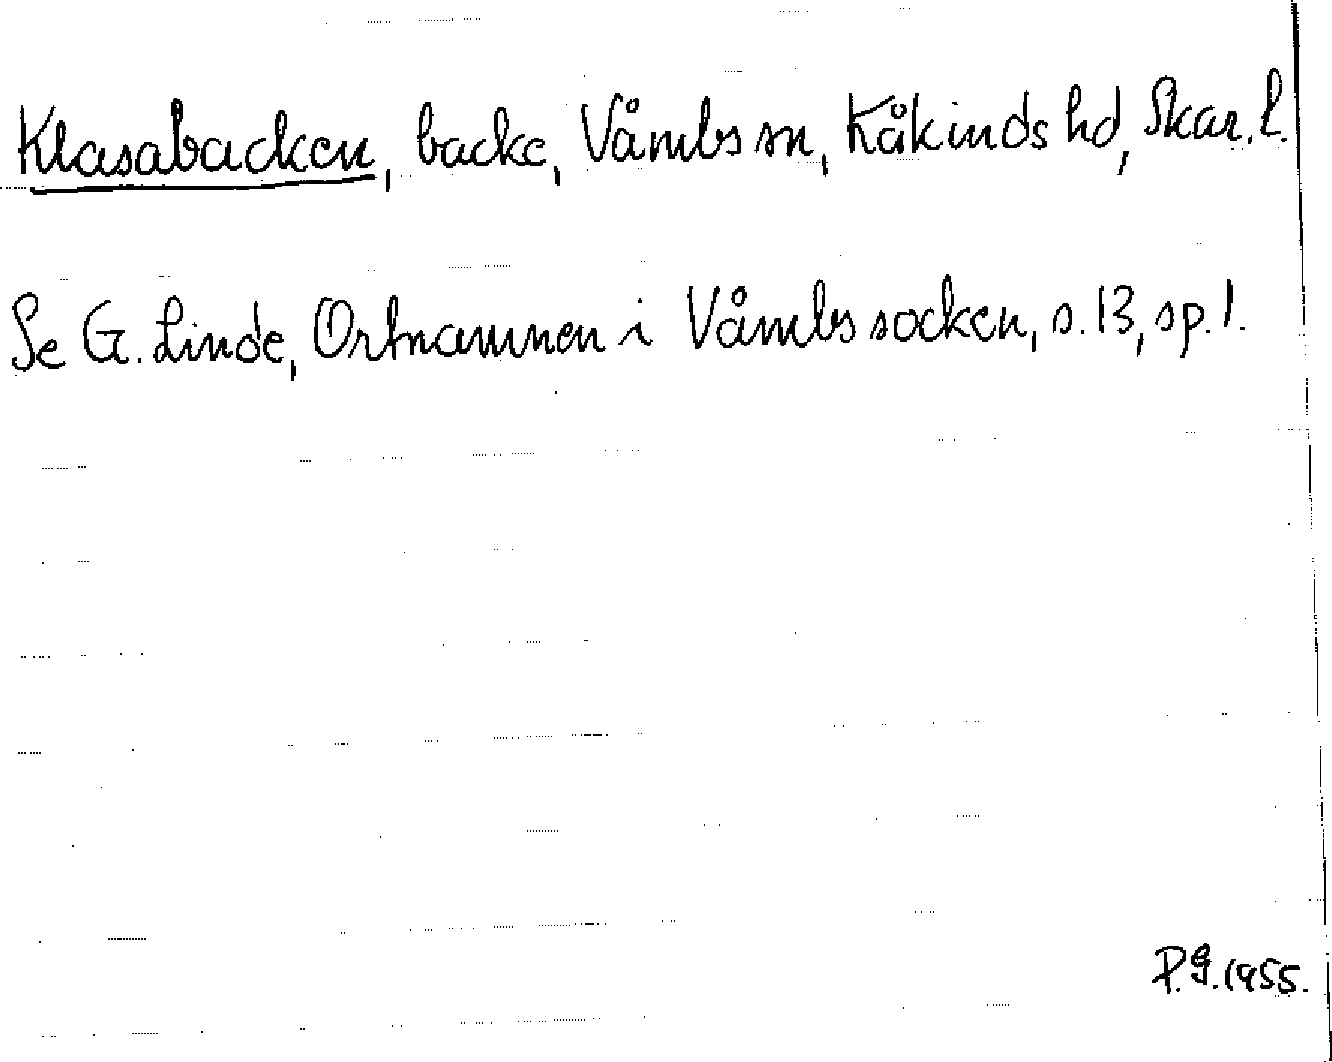 Klasabacken, backe, Våmbs sn, Kåkinds hd, Skar. l.
Se G. Linde, Ortnamnen i Våmbs socken, s. 13, sp. 1.
P.G. 1955.